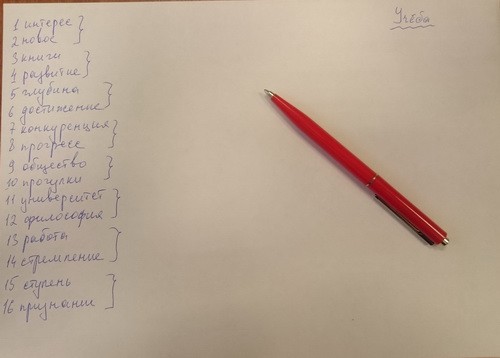 Учёба
1 интерес
2 новое
3 книги
4 развитие
5 глубина
6 достижение
7 конкуренция
8 прогресс
9 общество
10 прогулки
11 университет
12 философия
13 работа
14 стремление
15 ступень
16 признание